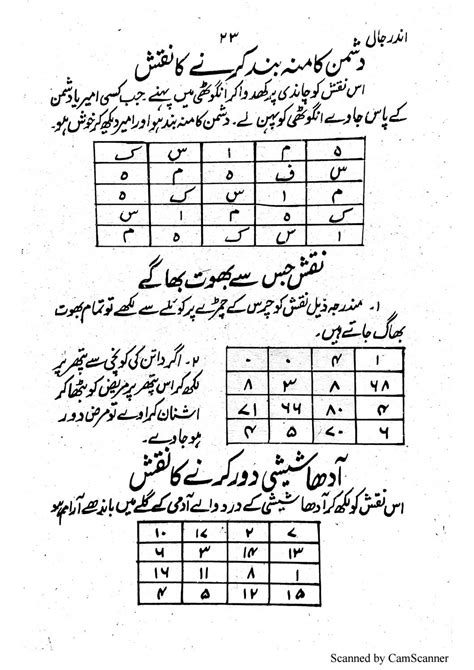 اندر جال ۲۳
دشمن کا منہ بند کرنے کا نقش
اس نقش کو چاندی پر کھدوا کر انگوٹھی میں پہنے جب کسی امیر یا دشمن
کے پاس جاوے انگوٹھی کو پہن لے۔ دشمن کا منہ بند ہو اور امیر دیکھ کر خوش ہو۔
ہ م ا س ک
س ف ہ م ہ
م ا س ک ہ
ک ہ م ا س
ا س ک ہ م
نقش جس سے بھوت بھاگے
۱۔ مندرجہ ذیل نقش کو چرس کے چمڑے پر کوئلے سے لکھے تو تمام بھوت
بھاگ جاتے ہیں۔
۱ ۴ ۰ ۰
۶۸ ۸ ۳ ۸
۴ ۸۰ ۶۶ ۷۱
۶ ۷۰ ۵ ۴
۲۔ اگر داتن کی کونچی سے پتھر پر
لکھ کر اس پتھر پر مریض کو بٹھا کر
اشنان کراوے تو مرض دور
ہو جاوے۔
آدھا شیشی دور کرنے کا نقش
اس نقش کو لکھ کر آدھا شیشی کے درد والے آدمی کے گلے میں باندھے آرام ہو
۷ ۲ ۱۷ ۱۰
۱۳ ۱۴ ۳ ۶
۱ ۸ ۱۱ ۱۶
۱۵ ۱۲ ۵ ۴
Scanned by CamScanner